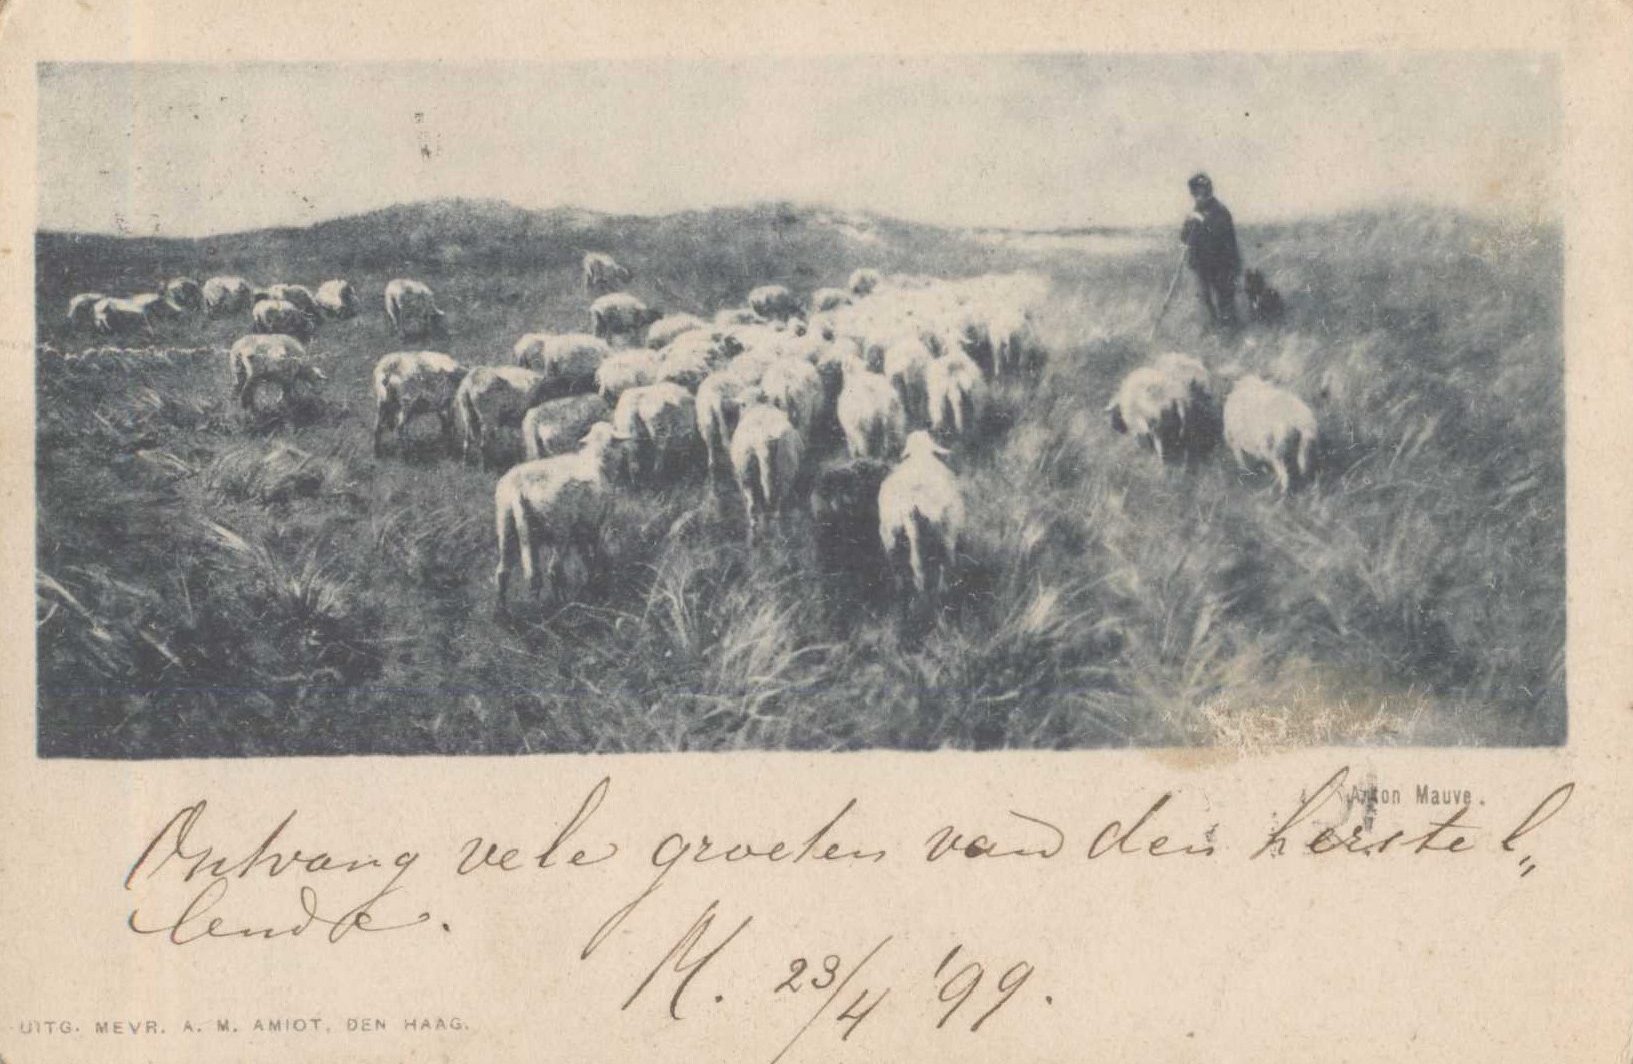 Anton Mauve.
Ontvang vele groeten van den herstel„
lende.
M. 23/4 '99.
UITG. MEVR. A. M. AMIOT, DEN HAAG.